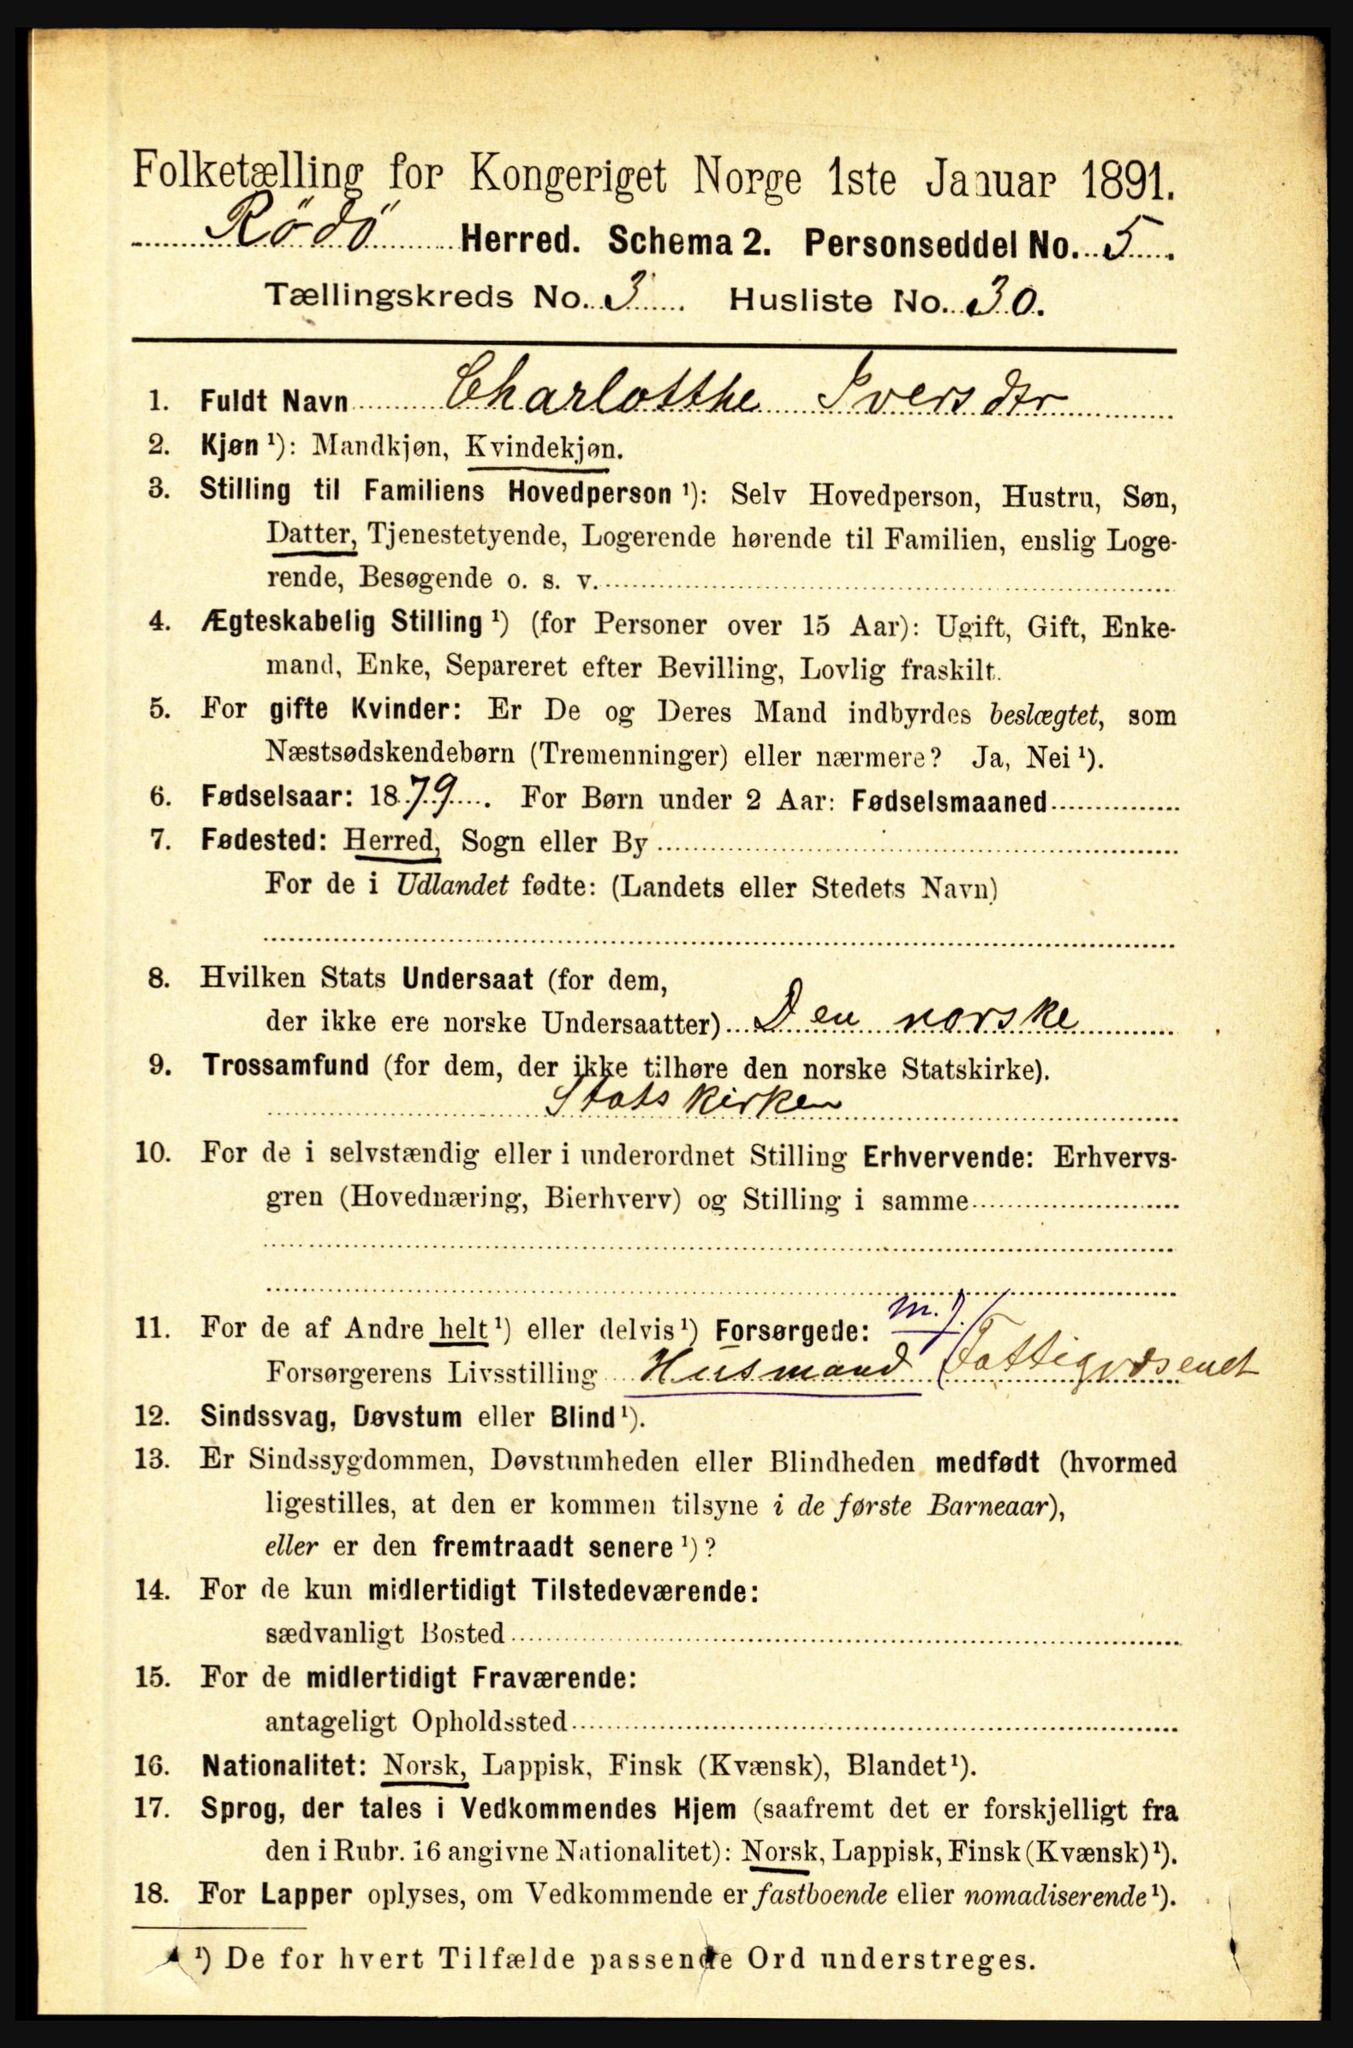 Folketælling for Kongeriget Norge 1ste Januar 1891.
Rödö Herred. Schema 2. Personseddel No. 5.
Tællingskreds No. 3. Husliste No. 30.
1. Fuldt Navn Charlotthe Iversdtr
2. Kjøn ¹): Mandkjøn, Kvindekjøn.
3. Stilling til Familiens Hovedperson ¹): Selv Hovedperson, Hustru, Søn,
Datter, Tjenestetyende, Logerende hørende til Familien, enslig Loge-
rende, Besøgende o. s. v.
4. Ægteskabelig Stilling ¹) (for Personer over 15 Aar): Ugift, Gift, Enke-
mand, Enke, Separeret efter Bevilling, Lovlig fraskilt.
5. For gifte Kvinder: Er De og Deres Mand indbyrdes beslægtet, som
Næstsødskendebørn (Tremenninger) eller nærmere? Ja, Nei ¹).
6. Fødselsaar: 1879. For Børn under 2 Aar: Fødselsmaaned
7. Fødested: Herred, Sogn eller By
For de i Udlandet fødte: (Landets eller Stedets Navn)
8. Hvilken Stats Undersaat (for dem,
der ikke ere norske Undersaatter) Den norske
9. Trossamfund (for dem, der ikke tilhøre den norske Statskirke).
Statskirken
10. For de i selvstændig eller i underordnet Stilling Erhvervende: Erhvervs-
gren (Hovednæring, Bierhverv) og Stilling i samme
11. For de af Andre helt ¹) eller delvis ¹) Forsørgede: m. J.
Forsørgerens Livsstilling Husmand / Fattigvæsenet
12. Sindssvag, Døvstum eller Blind ¹).
13. Er Sindssygdommen, Døvstumheden eller Blindheden medfødt (hvormed
ligestilles, at den er kommen tilsyne i de første Barneaar),
eller er den fremtraadt senere ¹)?
14. For de kun midlertidigt Tilstedeværende:
sædvanligt Bosted
15. For de midlertidigt Fraværende:
antageligt Opholdssted
16. Nationalitet: Norsk, Lappisk, Finsk (Kvænsk), Blandet ¹).
17. Sprog, der tales i Vedkommendes Hjem (saafremt det er forskjelligt fra
den i Rubr. 16 angivne Nationalitet): Norsk, Lappisk, Finsk (Kvænsk) ¹).
18. For Lapper oplyses, om Vedkommende er fastboende eller nomadiserende ¹).
¹) De for hvert Tilfælde passende Ord understreges.